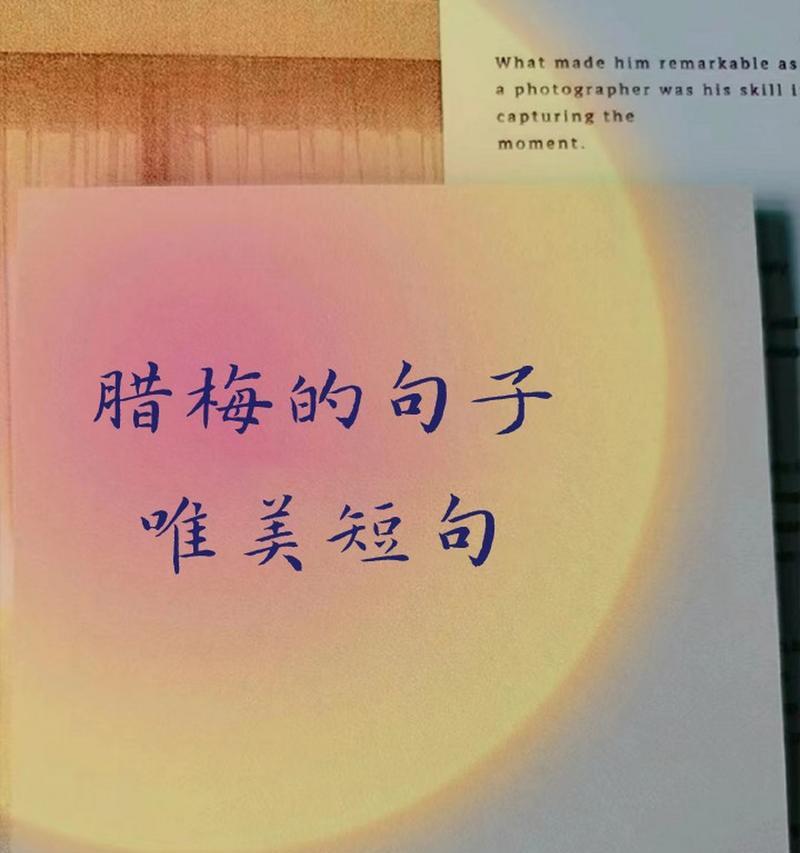 What made him remarkable as
a photographer was his skill
capturing the
moment.
腊梅的句子
唯美短句